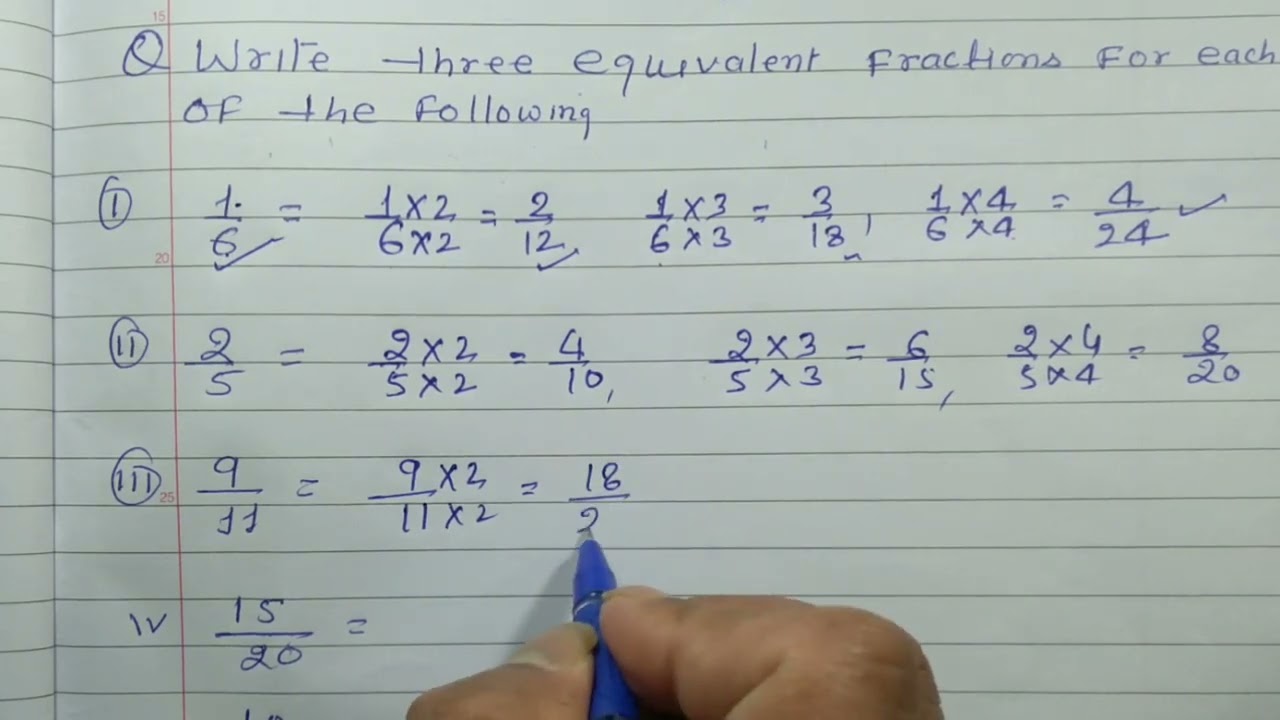 15
Q Write three equivalent fractions for each
of the following
(i) 1/6 = 1×2/6×2 = 2/12, 1×3/6×3 = 3/18, 1×4/6×4 = 4/24
20
(ii) 2/5 = 2×2/5×2 = 4/10, 2×3/5×3 = 6/15, 2×4/5×4 = 8/20
(iii) 9/11 = 9×2/11×2 = 18/2
25
iv 15/20 =